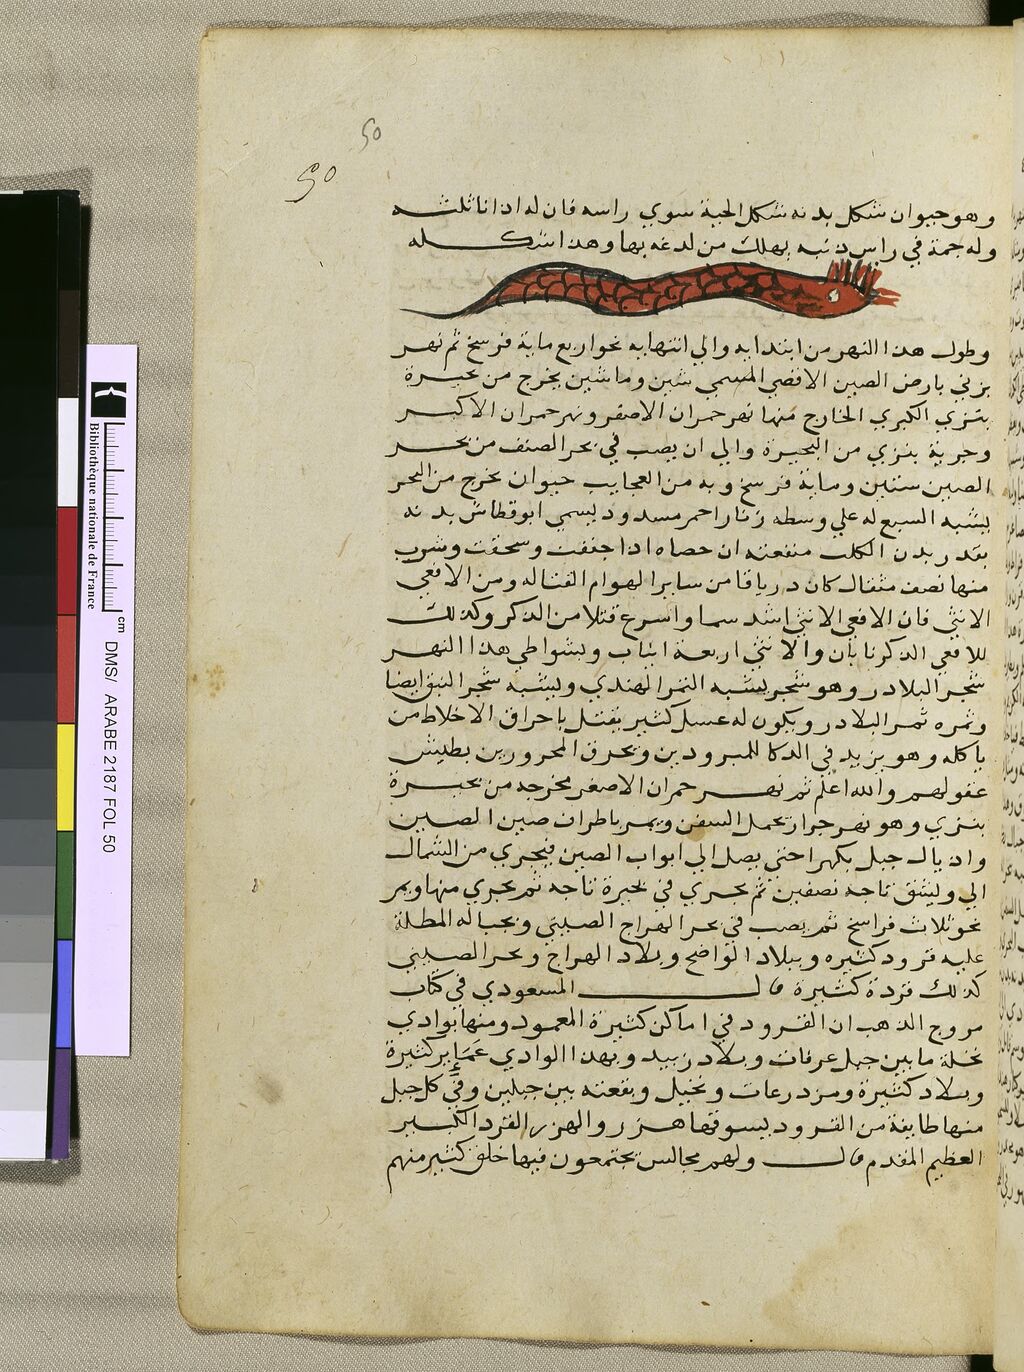 50
50
وهو حيوان شكل بدنه شكل الحية سوي راسه فان له اذانا ثلثه
وله حمة في راس ذنبه يهلك من لدغه بها وهذا شكله
وطول هذا النهر من ابتدايه والي انتهايه نحو اربع ماية فرسخ ثم نهر
بزني بارض الصين الاقصي المسمي شين وماشين يخرج من بحيرة
بنزي الكبري الخارج منها نهر حمران الاصفر ونهر حمران الاكبر
وجرية بنزي من البحيرة والي ان يصب في بحر الصنف من بحر
الصين ستين وماية فرسخ وبه من العجايب حيوان يخرج من البحر
يشبه السبع له علي وسطه زنار احمر مسدود يسمي ابو قطاش بدنه
بقدر بدن الكلب منفعته ان حصاه اذا جففت وسحقت وشرب
منها نصف مثقال كان درياقا من ساير الهوام القتاله ومن الافعي
الانثي فان الافعي الانثي اشد سما واسرع قتلا من الذكر وكذلك
للافعي الذكر نابان والانثي اربعة انياب وبشواطي هذا النهر
شجر البلادر وهو شجر يشبه التمر الهندي ويشبه شجر النبق ايضا
وثمره ثمر البلادر ويكون له عسل كثير يقتل باحراق الاخلاط من
ياكله وهو يزيد في الذكا للمبرودين ويحرق المحرورين بطيش
عقولهم والله اعلم ثم نهر حمران الاصغر مخرجه من بحيرة
بنزي وهو نهر جرار يحمل السفن ويمر باطران صين الصين
واذيال جبل بكهرا حتي يصل الي ابواب الصين فيجري من الشمال
الي وليشق تاجه نصفين ثم يجري في بحيرة تاجه ثم يجري منها ويمر
نحو ثلاث فراسخ ثم يصب في بحر الهراج الصيني وبجباله المطلة
عليه قرود كثيره وببلاد الواضح وبلاد الهراج وبحر الصيني
كذلك قردة كثيرة قال المسعودي في كتاب
مروج الذهب ان القرود في اماكن كثيرة المعمود ومنها بوادي
نخلة ما بين جبل عرفات وبلاد زبيد وبهذا الوادي عماير كثيرة
وبلاد كثيرة ومزدرعات ونخيل وبقعته بين جبلين وفي كل جبل
منها طايفة من القرود يسوقها هزر والهزر القرد الكبير
العظيم المقدم قال ولهم مجالس يجتمعون فيها خلق كثير منهم
Bibliothèque nationale de France
cm
DMS/ ARABE 2187 FOL 50